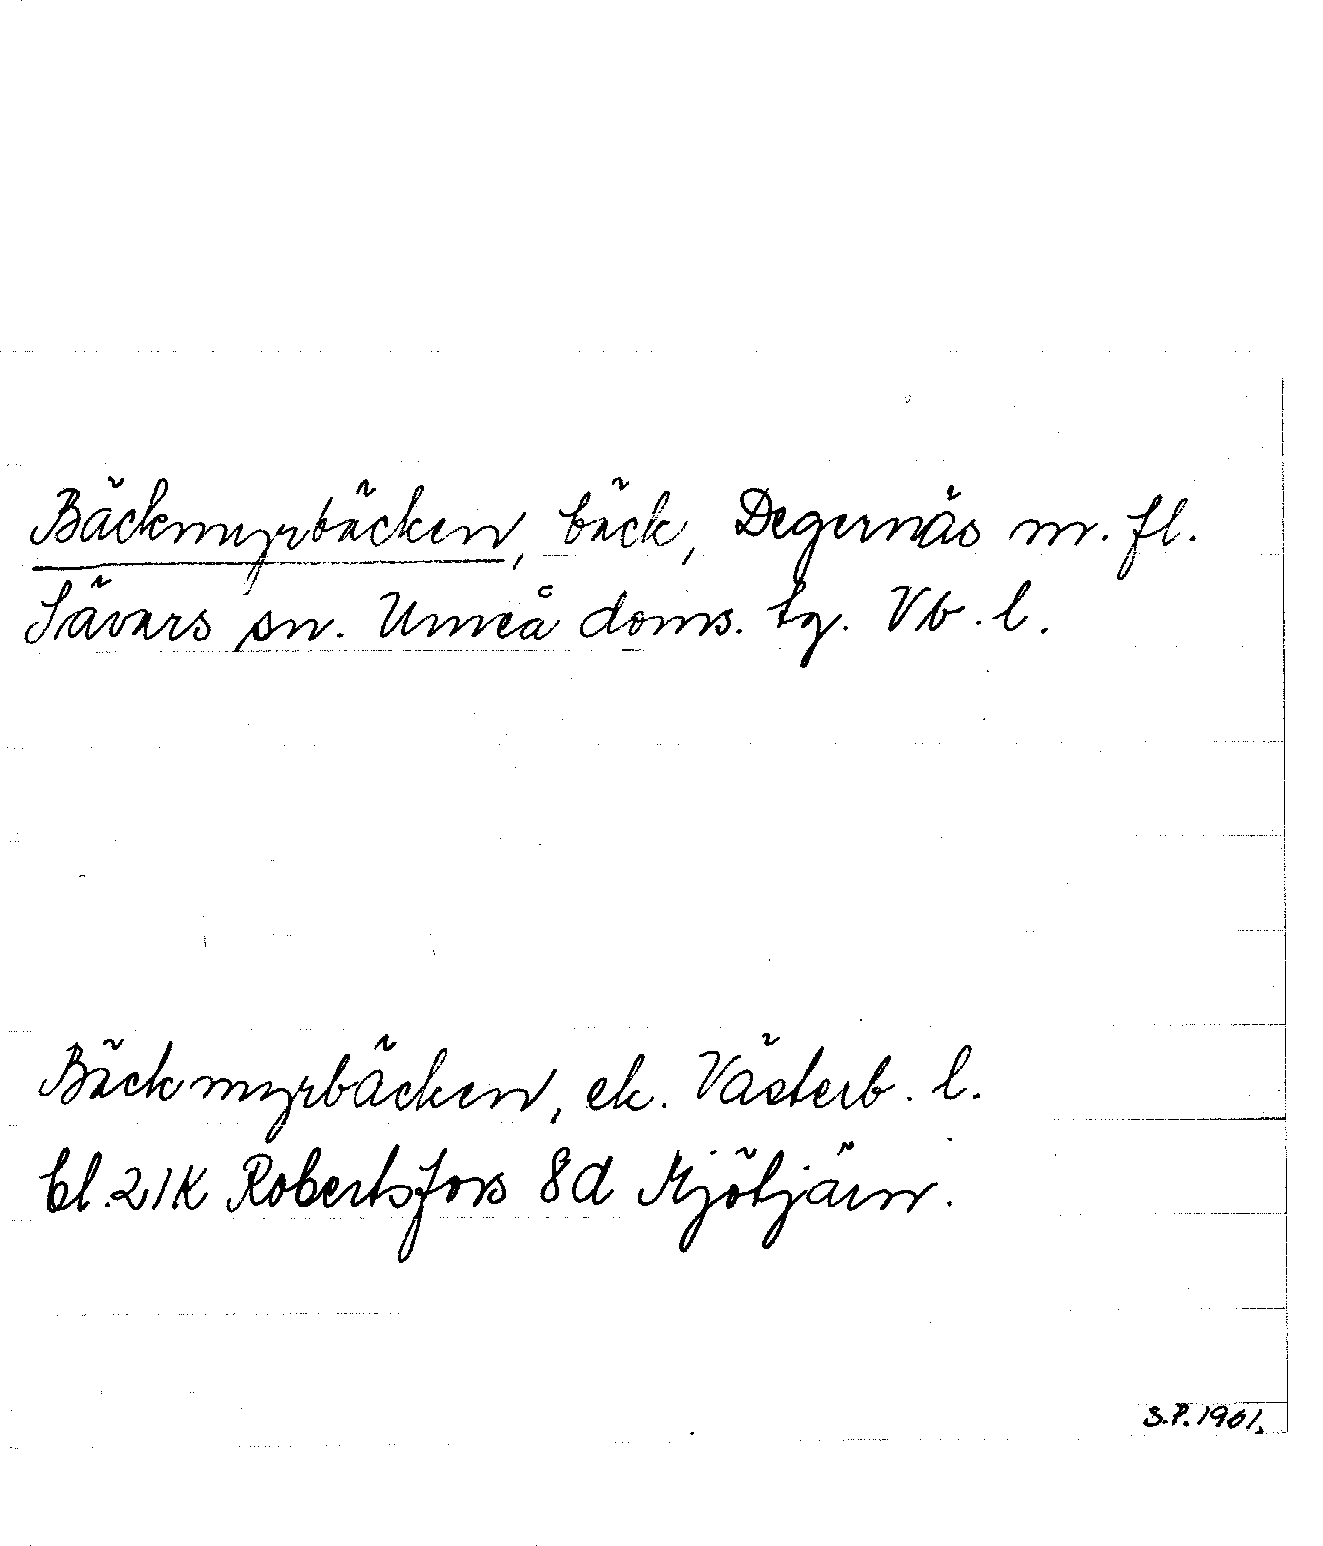 Bäckmyrbäcken, bäck, Degernäs m. fl.
Sävars sn. Umeå doms. tg. Vb. l.
Bäckmyrbäcken, ek. Västerb. l.
bl. 21K Robertsfors 8d Mjötjärn.
S.P. 1961.